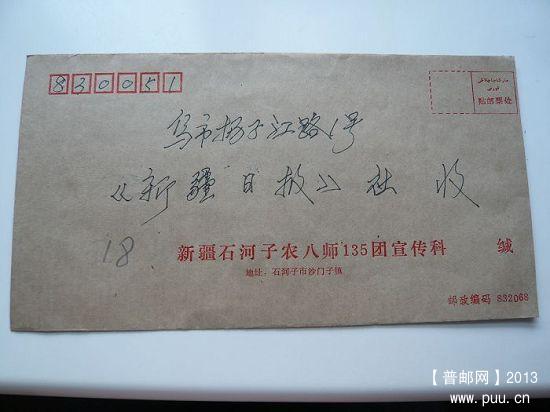 830051
贴邮票处
乌市扬子江路1号
《新疆日报》社 收
18
新疆石河子农八师135团宣传科 缄
地址：石河子市沙门子镇
邮政编码 832068
【普邮网】2013
www.puu.cn